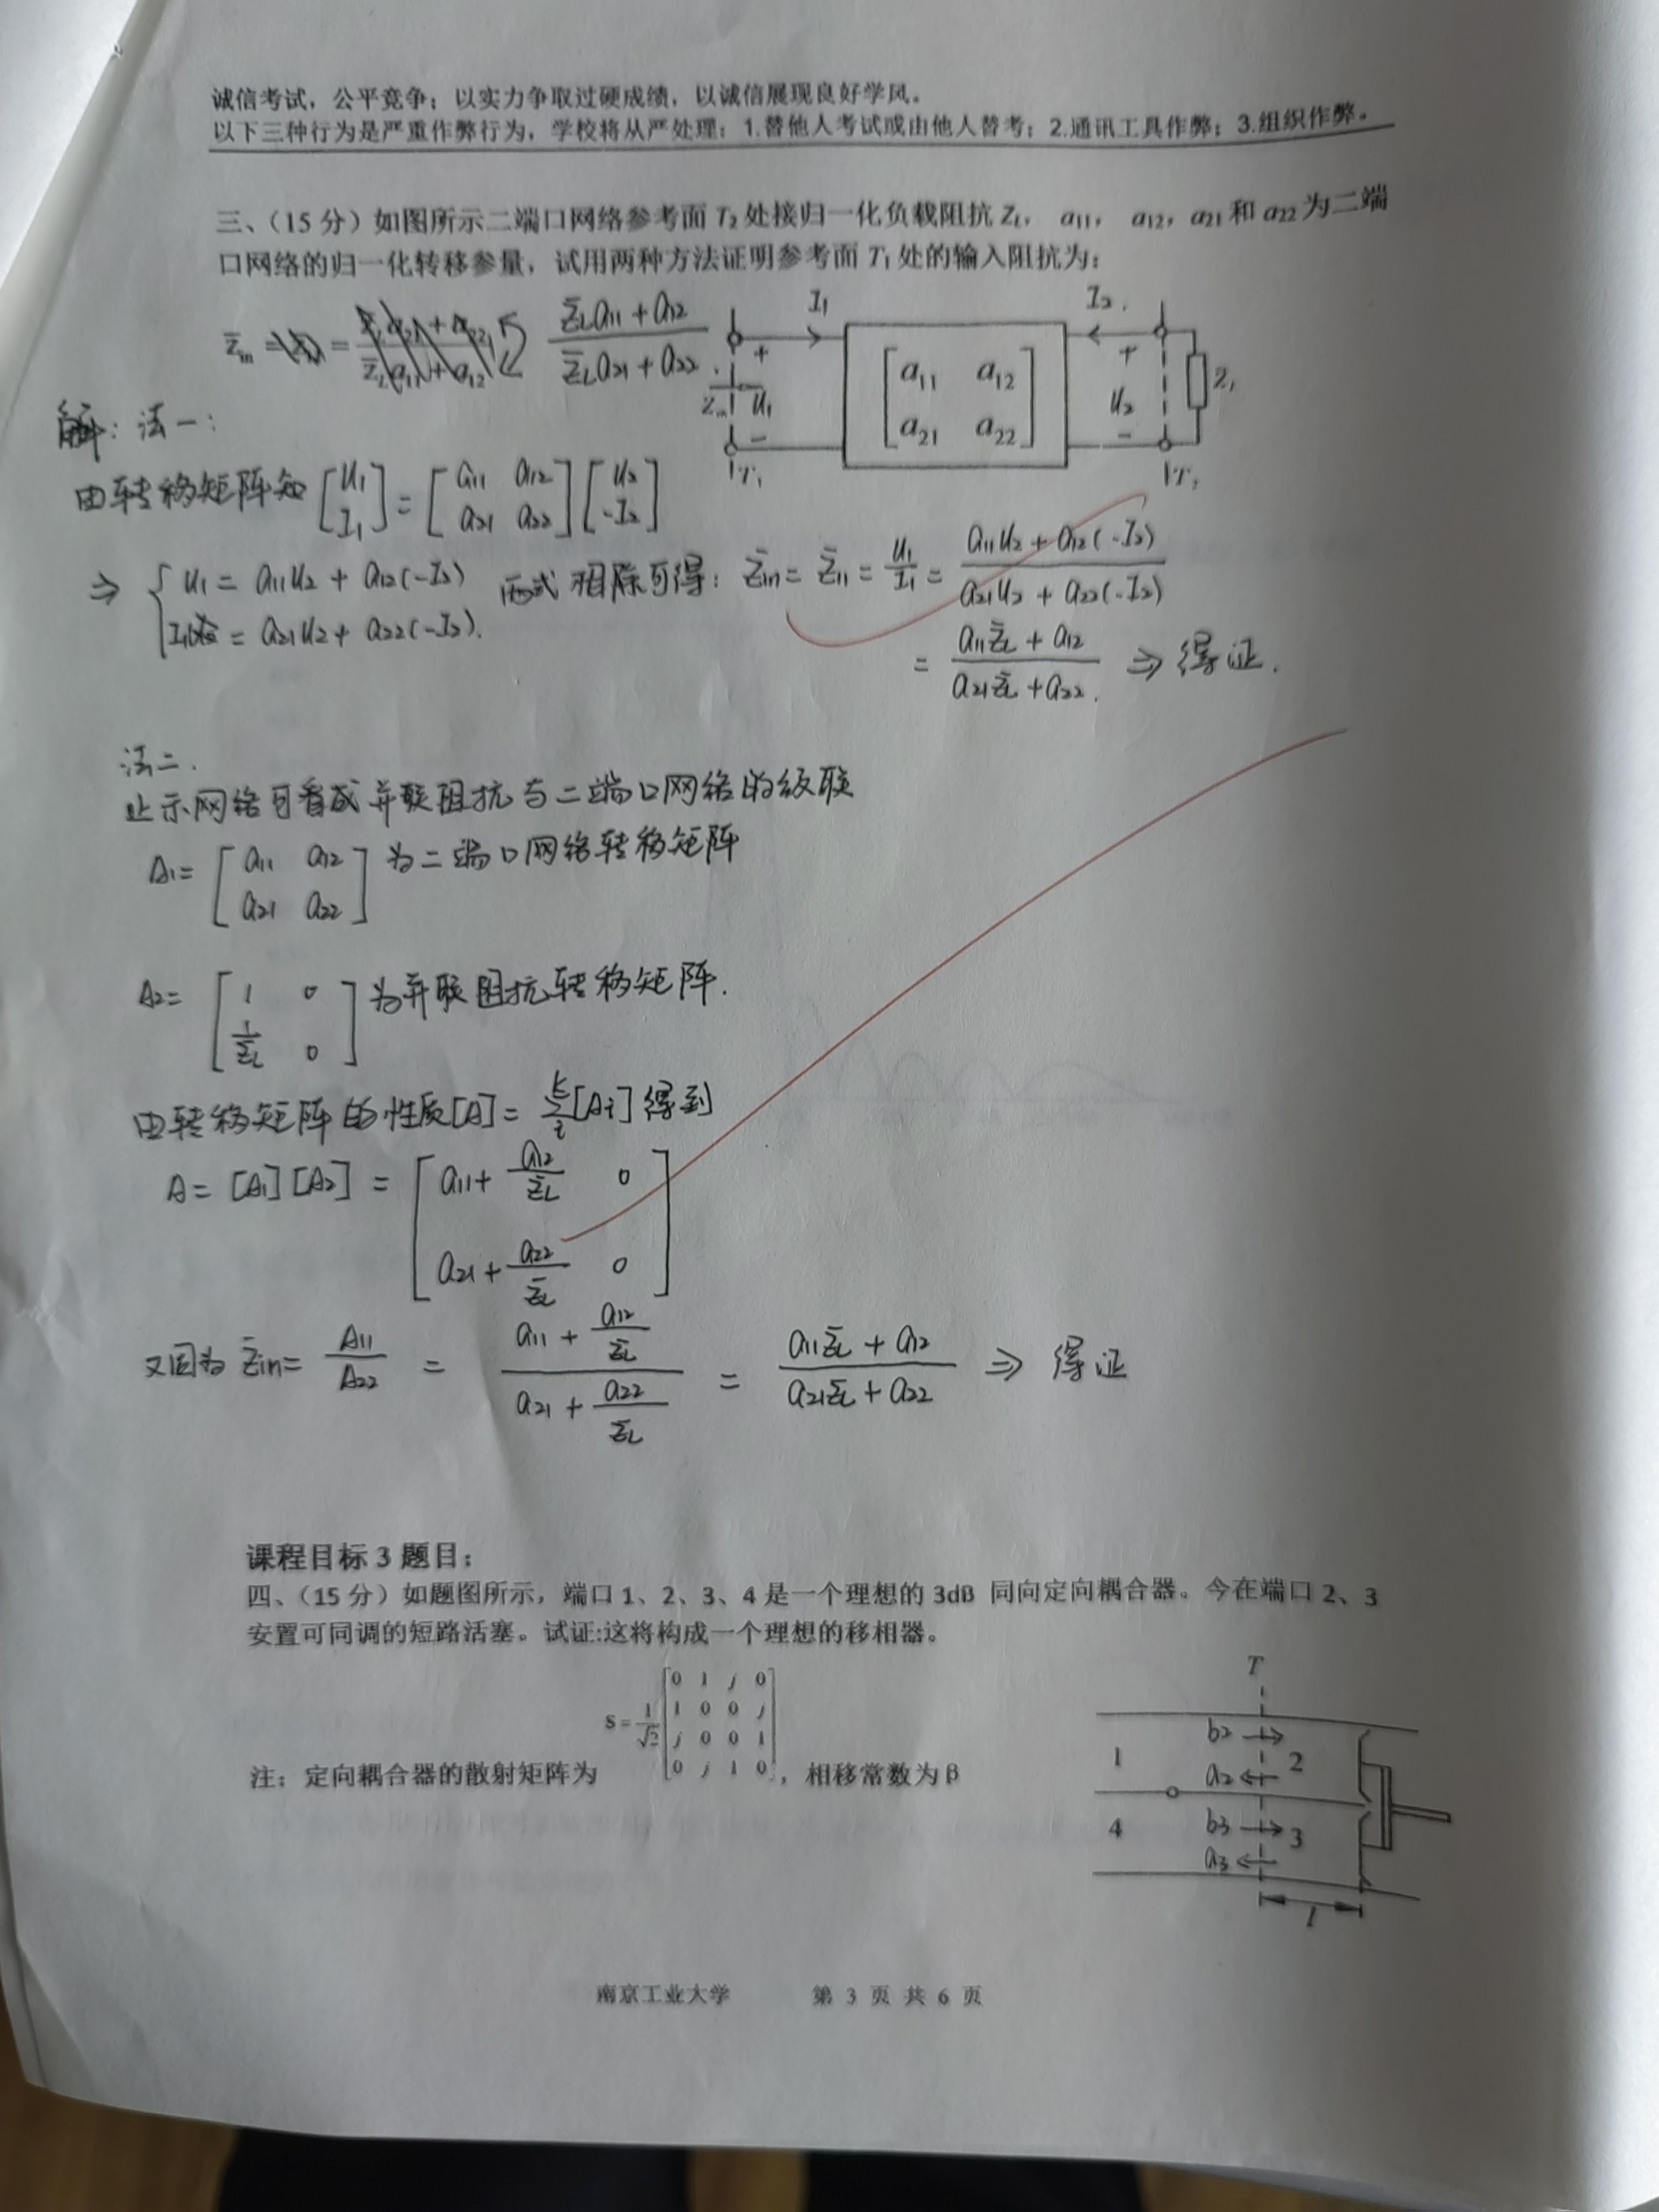 诚信考试，公平竞争；以实力争取过硬成绩，以诚信展现良好学风。
以下三种行为是严重作弊行为，学校将从严处理：1.替他人考试或由他人替考；2.通讯工具作弊；3.组织作弊。
三、（15 分）如图所示二端口网络参考面 T₂ 处接归一化负载阻抗 Z_L， a₁₁， a₁₂，a₂₁ 和 a₂₂ 为二端
口网络的归一化转移参量，试用两种方法证明参考面 T₁ 处的输入阻抗为：
z̄_in = (z̄_L a₁₁ + a₁₂) / (z̄_L a₂₁ + a₂₂)
I₁ I₂
+ U₁ - [a₁₁ a₁₂; a₂₁ a₂₂] + U₂ -
Z_in T₁ T₂
解：法一：
由转移矩阵知 [U₁; I₁] = [a₁₁ a₁₂; a₂₁ a₂₂] [U₂; -I₂]
⇒ { U₁ = a₁₁U₂ + a₁₂(-I₂) 两式相除可得：z̄in = z̄₁₁ = U₁/I₁ = (a₁₁U₂ + a₁₂(-I₂)) / (a₂₁U₂ + a₂₂(-I₂))
I₁ = a₂₁U₂ + a₂₂(-I₂).
= (a₁₁z̄L + a₁₂) / (a₂₁z̄L + a₂₂) ⇒ 得证.
法二.
示网络可看成并联阻抗与二端口网络的级联
A₁= [a₁₁ a₁₂; a₂₁ a₂₂] 为二端口网络转移矩阵
A₂= [1 0; 1/z̄L 0] 为并联阻抗转移矩阵.
由转移矩阵的性质[A]= [Ai] 得到
A= [A₁][A₂] = [a₁₁+a₁₂/z̄L 0; a₂₁+a₂₂/z̄L 0]
又因为 z̄in= A₁₁/A₂₂ = (a₁₁ + a₁₂/z̄L) / (a₂₁ + a₂₂/z̄L) = (a₁₁z̄L + a₁₂) / (a₂₁z̄L + a₂₂) ⇒ 得证
课程目标 3 题目：
四、（15 分）如题图所示，端口 1、2、3、4 是一个理想的 3dB 同向定向耦合器。今在端口 2、3
安置可同调的短路活塞。试证:这将构成一个理想的移相器。
注：定向耦合器的散射矩阵为 S = 1/√2 [0 1 j 0; 1 0 0 j; j 0 0 1; 0 j 1 0]，相移常数为 β
T
1 b₂ → 2
a₂ ←
4 b₃ → 3
a₃ ←
l
南京工业大学 第 3 页 共 6 页